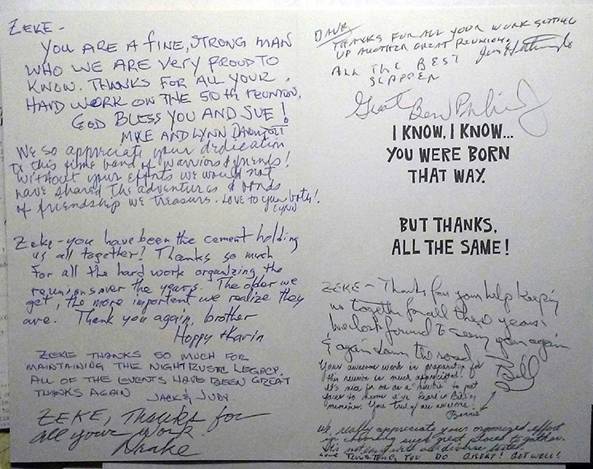 ZEKE -
YOU ARE A FINE, STRONG MAN
WHO WE ARE VERY PROUD TO
KNOW. THANKS FOR ALL YOUR
HARD WORK ON THE 50TH REUNION.
GOD BLESS YOU AND SUE!
MIKE AND LYNN DAVENPORT
We so appreciate your dedication
to this fine band of warriors & friends!
Without your efforts we would not
have shared the adventures & bonds
of friendship we treasure. Love to you both!
Lynn
Zeke - you have been the cement holding
us all together! Thanks so much
for all the hard work organizing the
reunions over the years. The older we
get, the more important we realize they
are. Thank you again, brother
Hoppy & Karin
ZEKE THANKS SO MUCH FOR
MAINTAINING THE NIGHTRUSTLER LEGACY.
ALL OF THE EVENTS HAVE BEEN GREAT
THANKS AGAIN JACK & JUDY
ZEKE, Thanks for
all your work!
Drake
THANKS FOR ALL YOUR WORK SETTING
UP ANOTHER GREAT REUNION.
ALL THE BEST
Great
I KNOW, I KNOW...
YOU WERE BORN
THAT WAY.
BUT THANKS,
ALL THE SAME!
ZEKE - Thanks for your help keeping
us together for all these years.
We look forward to seeing you again
& again down the road
Bill
Your awesome work in preparing for
this reunion is much appreciated!
It's nice for me as a newbie to put
faces to names I've heard in Bill's
memories. You two are awesome!
Bonnie
We really appreciate your organized effort
in choosing such great places to gather.
YOU DO GREAT! GET WELL!